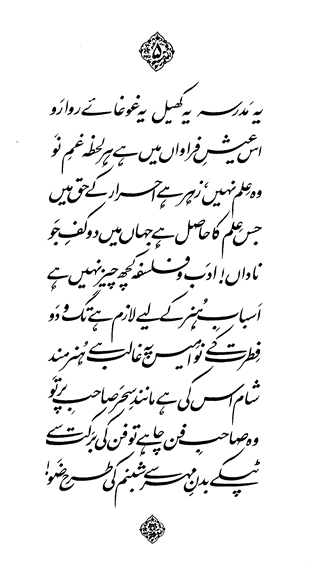 ۵
یہ مَدرسہ یہ کھیل یہ غوغائے روارَو
اس عیشِ فراواں میں ہے ہر لحظہ غمِ نَو
وہ عِلم نہیں، زہر ہے احرار کے حق میں
جس عِلم کا حاصل ہے جہاں میں دو کفِ جَو
ناداں! ادَب و فلسفہ کچھ چیز نہیں ہے
اَسبابِ ہُنر کے لیے لازم ہے تگ و دَو
فِطرت کے نوامیس پہ غالب ہے ہُنرمند
شام اس کی ہے مانندِ سحَر صاحبِ پرتَو
وہ صاحبِ فن چاہے تو فن کی بَرکت سے
ٹپکے بدنِ مہر سے شبنم کی طرح ضَو!